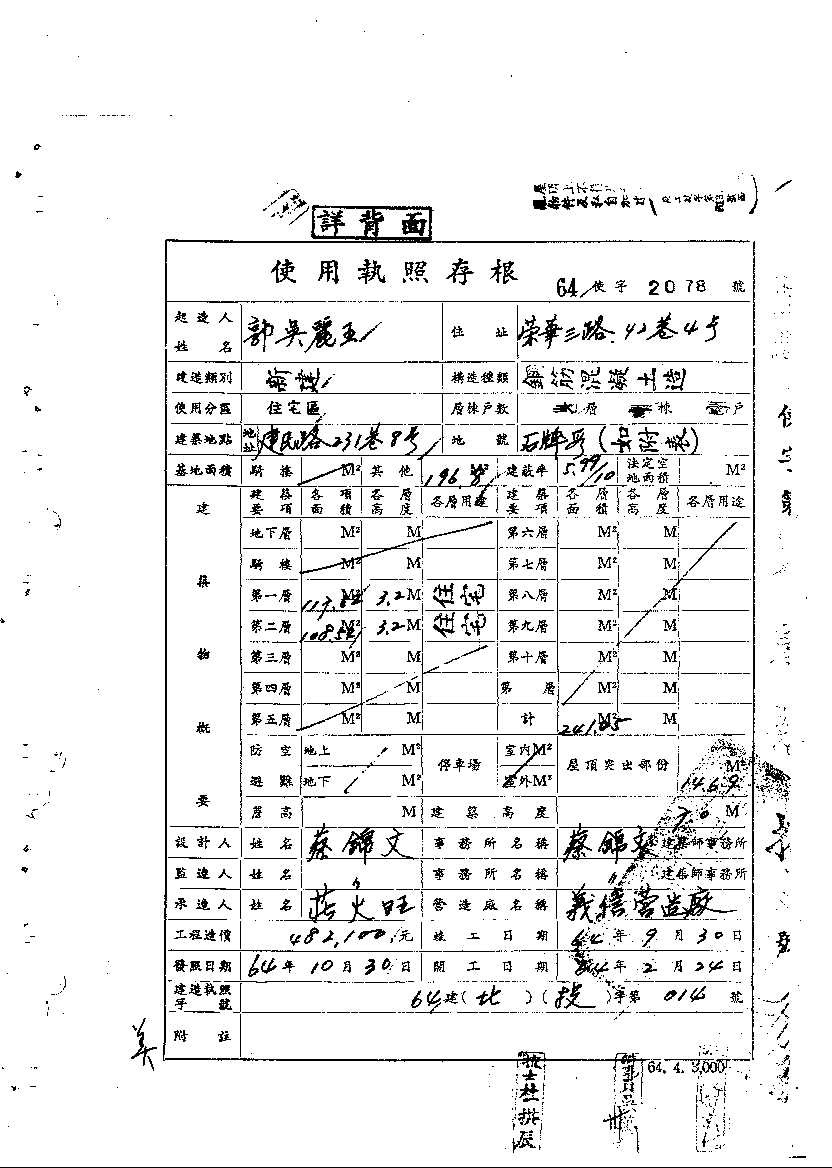 詳背面
使用執照存根
64使字2078號
起造人姓名 郭吳麗玉 住址 榮華三路42巷4号
建造類別 新建 構造種類 鋼筋混凝土造
使用分區 住宅區 層棟戶數 層 棟 戶
建築地點 地址 建民路231巷8号 地號 石牌段(如附表)
基地面積 騎樓 M² 其他 196 M² 建蔽率 5.99/10 法定空地面積 M²
建築物概要 建築要項 各項面積 各層高度 各層用途 建築要項 各層面積 各層高度 各層用途
地下層 M² M 第六層 M² M
騎樓 M² M 第七層 M² M
第一層 M² 3.2M 住宅 第八層 M² M
第二層 108.52 M² 3.2M 住宅 第九層 M² M
第三層 M² M 第十層 M² M
第四層 M² M 第 層 M² M
第五層 M² M 計 M² M
防空避難 地上 M² 停車場 室內M² 屋頂突出部份 14.69 M²
地下 M² 室外M²
簷高 M 建築高度 7.0 M
設計人 姓名 蔡錦文 事務所名稱 蔡錦文 建築師事務所
監造人 姓名 〃 事務所名稱 〃 建築師事務所
承造人 姓名 莊火旺 營造廠名稱 營造廠
工程造價 482,100元 竣工日期 64年9月30日
發照日期 64年10月30日 開工日期 64年2月24日
建造執照字號 64建(北)(投)字第014號
附註
美
64.4.3,000
技士杜拱辰